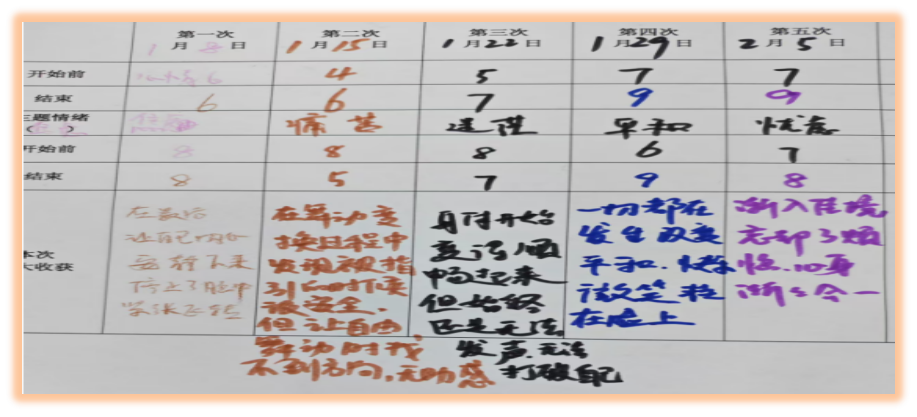 第一次 第二次 第三次 第四次 第五次
1月8日 1月15日 1月22日 1月29日 2月5日
开始前 6 4 5 7 7
结束 6 6 7 9 9
主题情绪 痛苦 迷惘 平和 忧愁
开始前 8 8 8 6 7
结束 8 5 7 9 8
本次
大收获
在最后
让自己内心
安静下来
停止了脑中
紧张
在舞动变
换过程中
发现被指
引的时候
很安全,
但让自由
舞动时找
不到方向,无助感
身体开始
变得顺
畅起来
但始终
还是无法
发声,无法
打破自己
一切都在
发生改变
平和、快乐
微笑挂
在脸上
渐入佳境
忘却了烦
恼、心身
渐渐合一